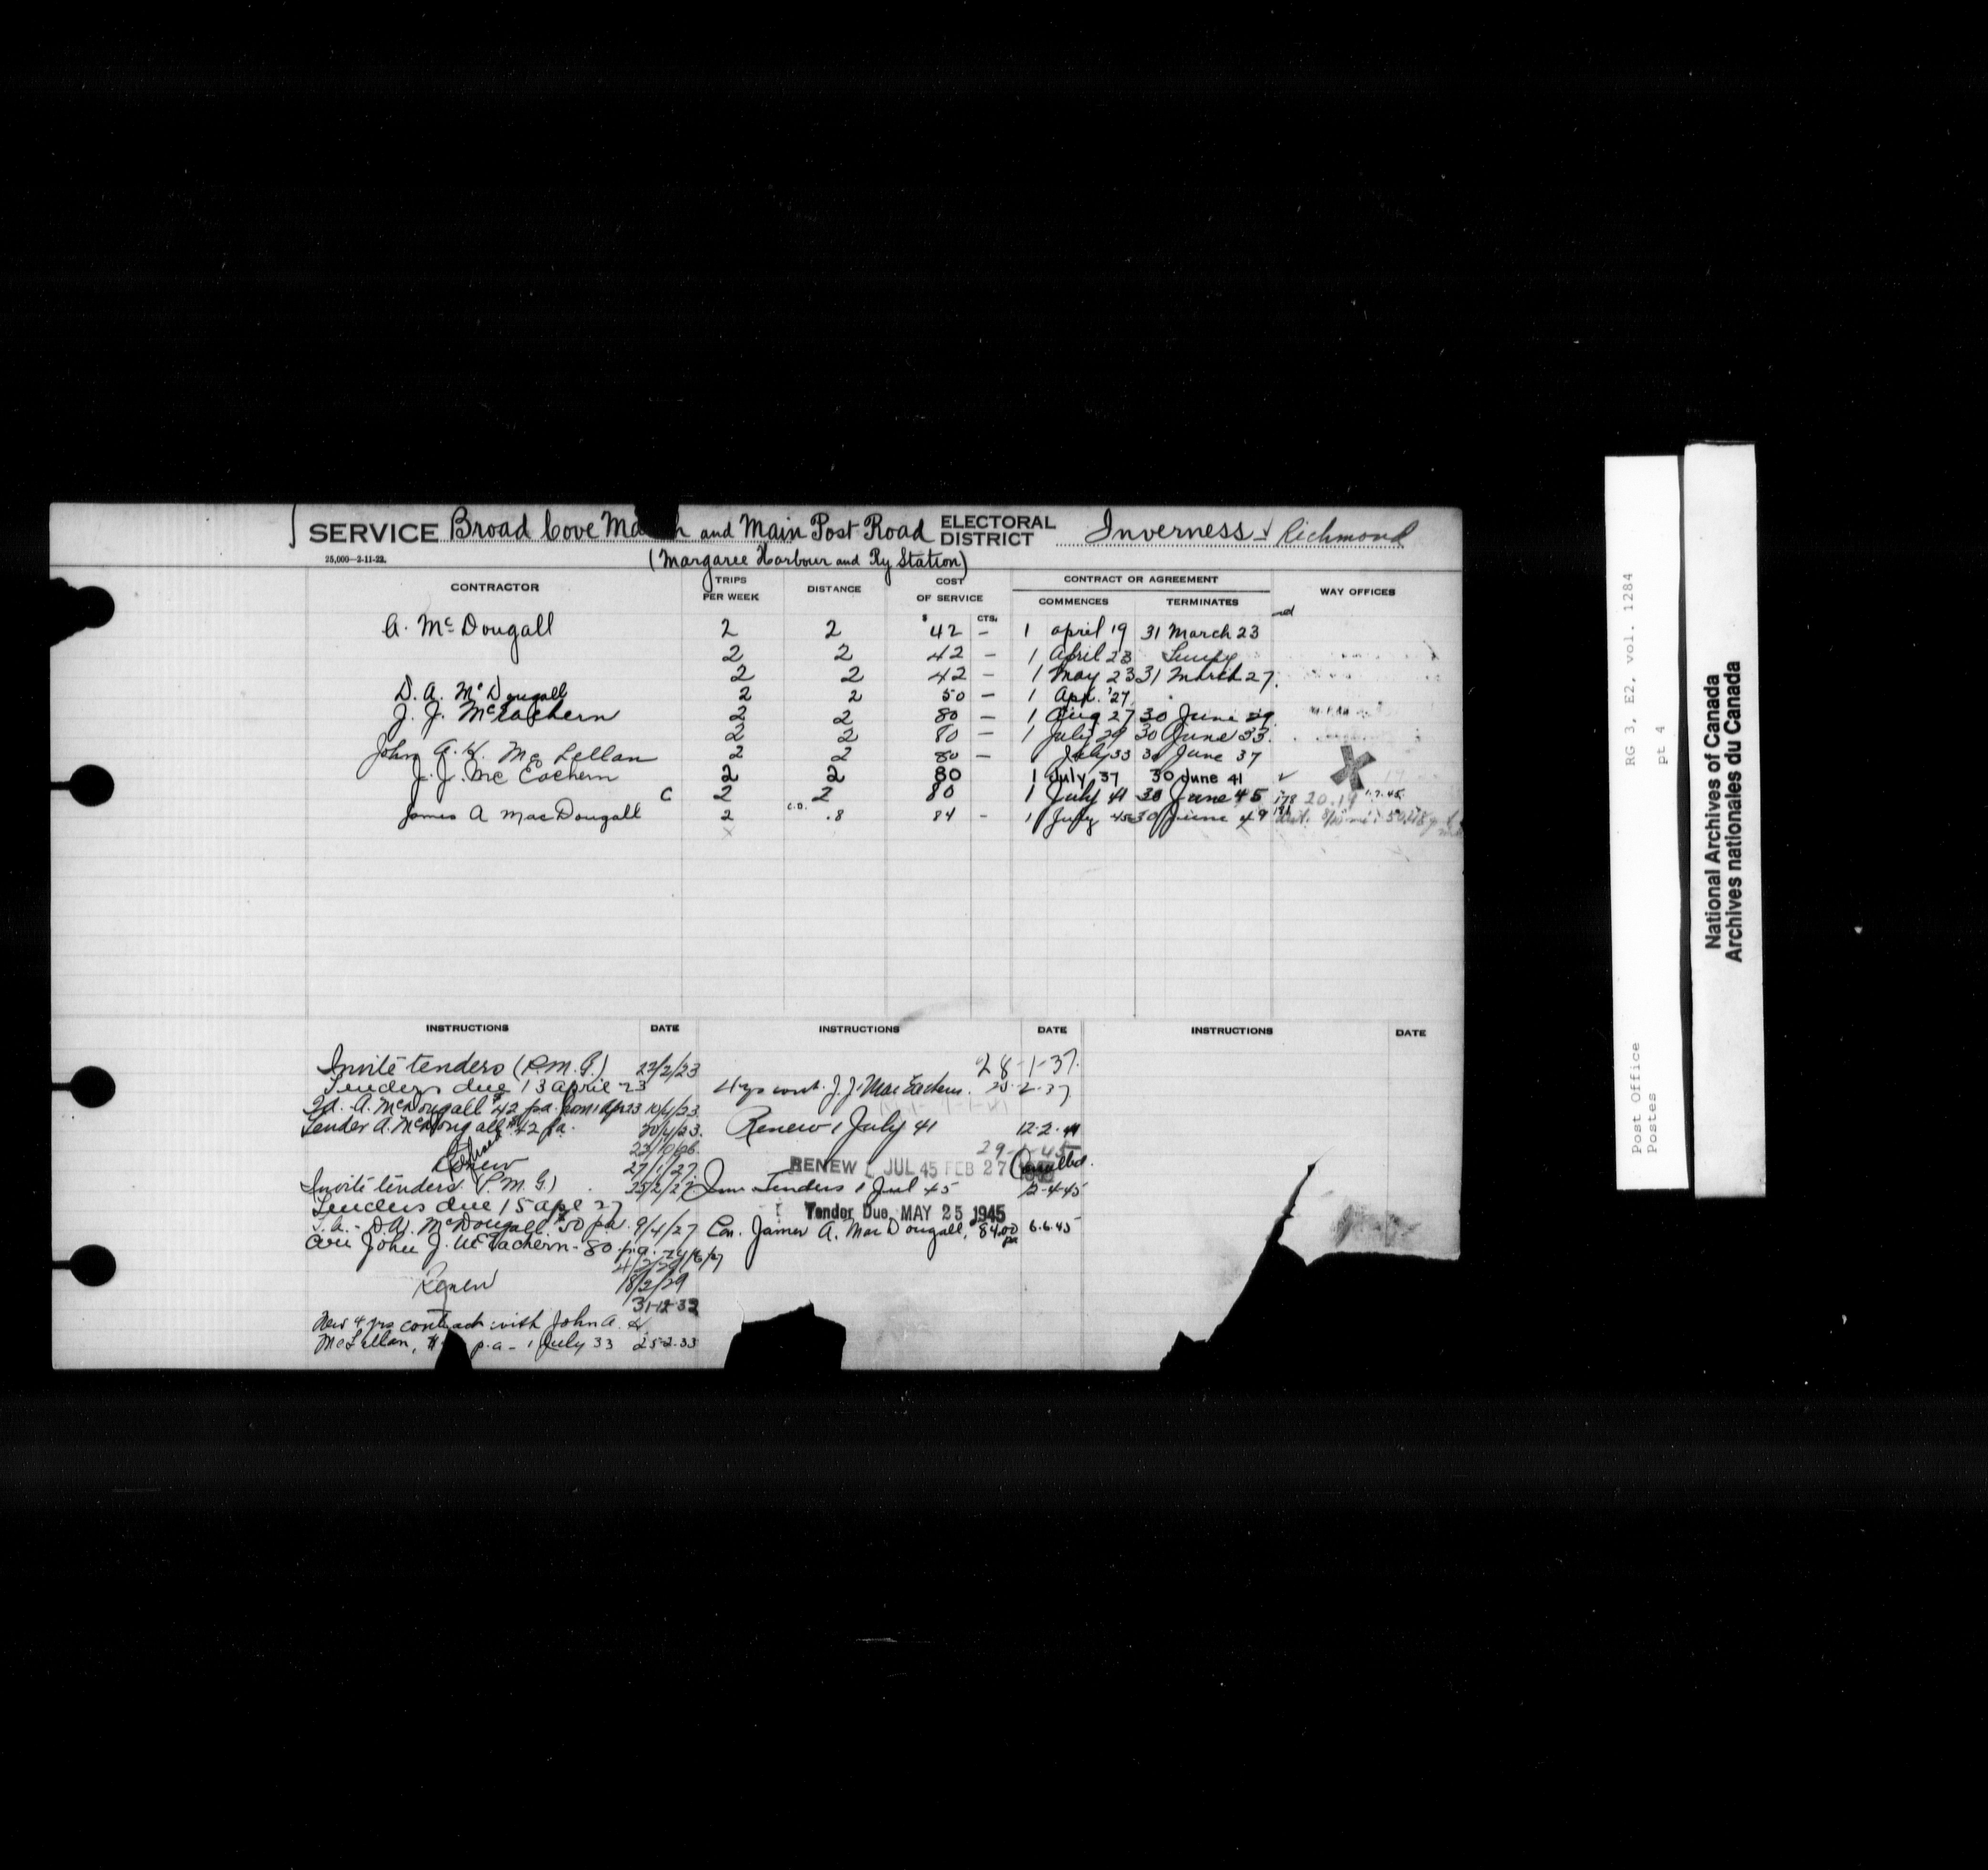 SERVICE Broad Cove Ma h and Main Post Road ELECTORAL DISTRICT Inverness - Richmond
25,000—2-11-22.
(Margaree Harbour and Ry Station)
CONTRACTOR TRIPS PER WEEK DISTANCE COST OF SERVICE CONTRACT OR AGREEMENT WAY OFFICES
$ CTS. COMMENCES TERMINATES
A. McDougall 2 2 42 - 1 April 19 31 March 23
2 2 42 - 1 April 23
2 2 42 - 1 May 23 31 March 27
D. A. McDougall 2 2 50 - 1 Apl. '27
J. J. McEachern 2 2 80 - 1 Aug 27 30 June 29
2 2 80 - 1 July 29 30 June 33
John A. H. McLellan 2 2 80 - 1 July 33 30 June 37
J. J. McEachern 2 2 80 1 July 37 30 June 41
C 2 2 80 1 July 41 30 June 45 20.19 1.7.45
James A MacDougall 2 .8 84 - 1 July 45 30 June 49
INSTRUCTIONS DATE INSTRUCTIONS DATE INSTRUCTIONS DATE
Invite tenders (P.M.G.) 22/2/23
Tenders due 13 April 23
A. McDougall $42 pa. from 1 Apr 23 10/4/23
Tender A. McDougall $42 pa. 30/4/23.
Renew 27/1/27.
Invite tenders (P.M.G) 25/2/27
Tenders due 15 Apl 27
T.A. - D.A. McDougall $50 pa. 9/4/27
John J. McEachern - 80 p.a.
Renew 18/2/29
31-12-32
New 4 yrs contract with John A. H
McLellan, p.a - 1 July 33 25-2-33
28-1-37.
4 yr cont. J. J. MacEachern. 2-37
Renew 1 July 41 12-2-41
29-1-45
RENEW 1 JUL 45 FEB 27 Cancelled.
Inv Tenders 1 Jul 45 12-4-45
Tender Due, MAY 25 1945
Con. James A. MacDougall, 84.00 pa 6.6.45
RG 3, E2, vol. 1284
pt 4
Post Office
Postes
National Archives of Canada
Archives nationales du Canada